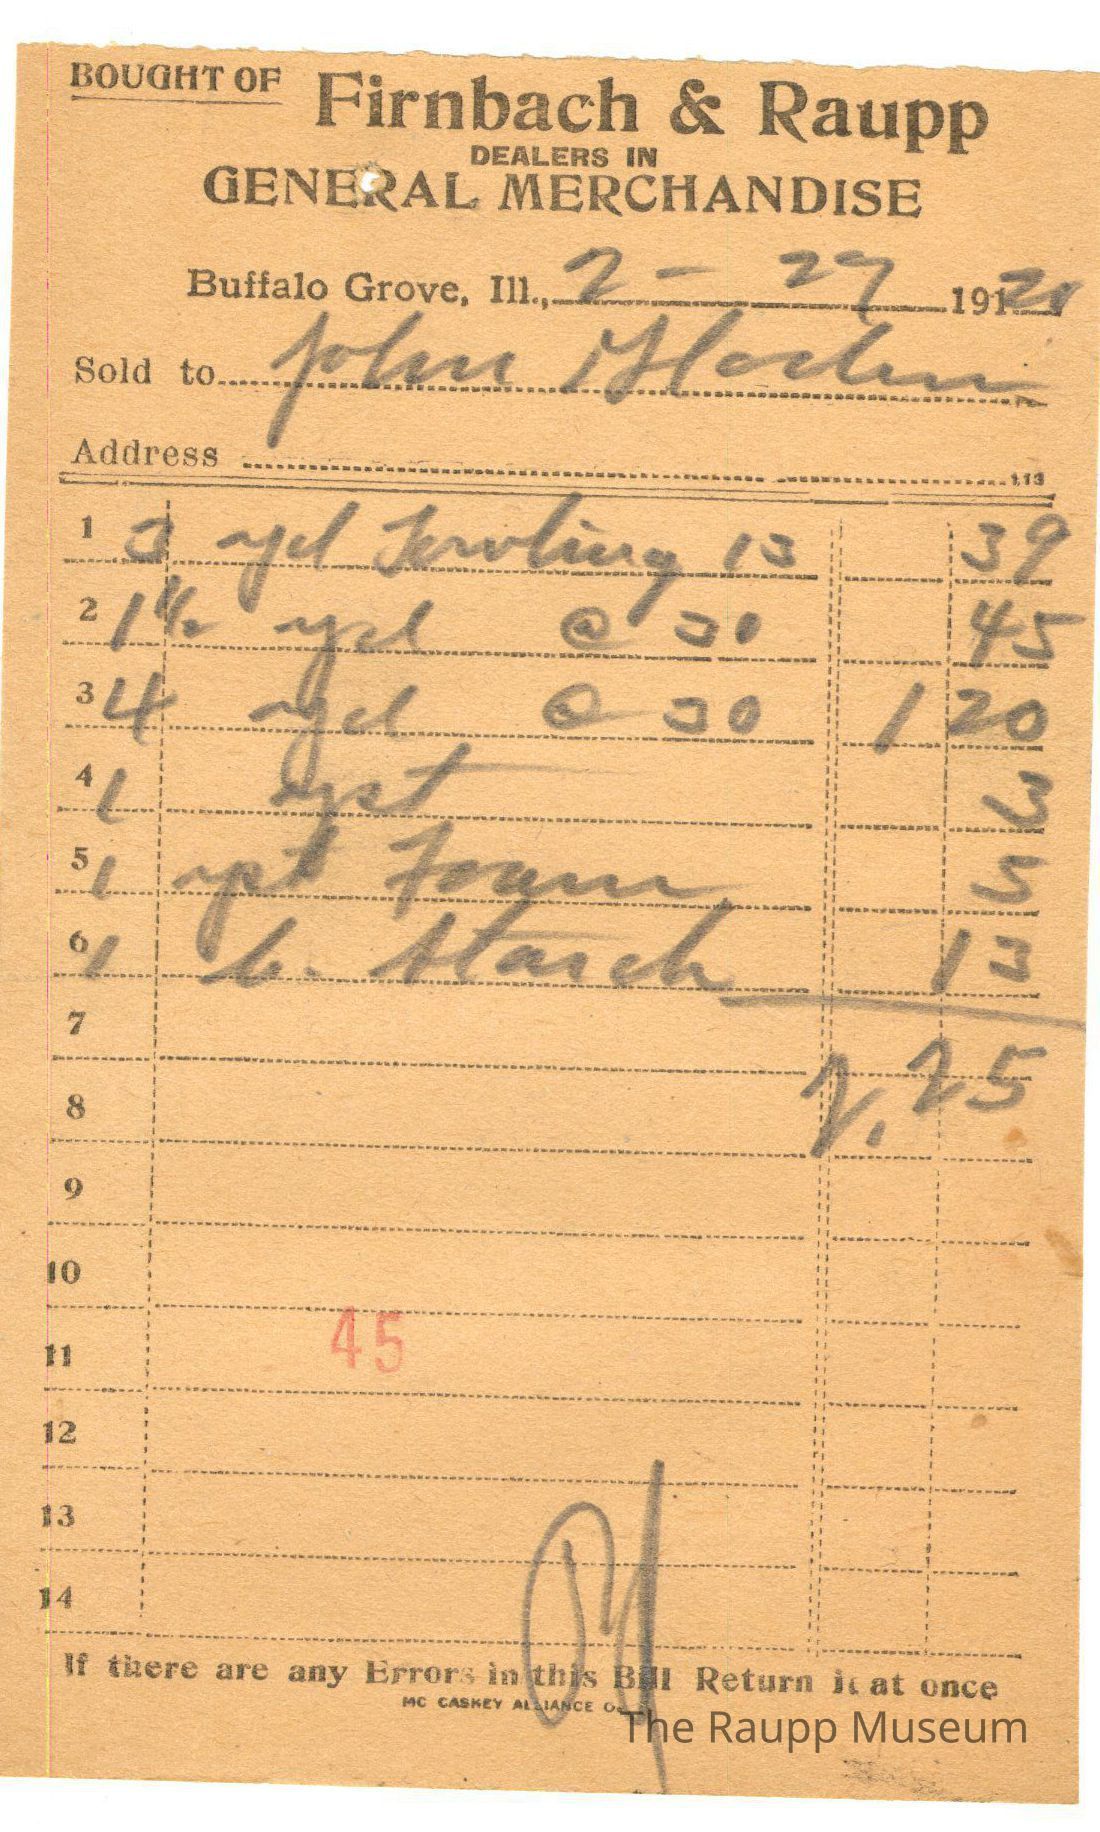 BOUGHT OF Firnbach & Raupp
DEALERS IN
GENERAL MERCHANDISE
Buffalo Grove, Ill., 2 - 27 191
Sold to John
Address
113
1 3 yd 13 39
2 1½ yd @ 30 45
3 4 yd @ 30 1 20
4 1 3
5 1 5
6 1 b. Starch 13
7
2.25
8
9
10
45
11
12
13
14
If there are any Errors in this Bill Return it at once
MC CASKEY ALLIANCE O.
The Raupp Museum